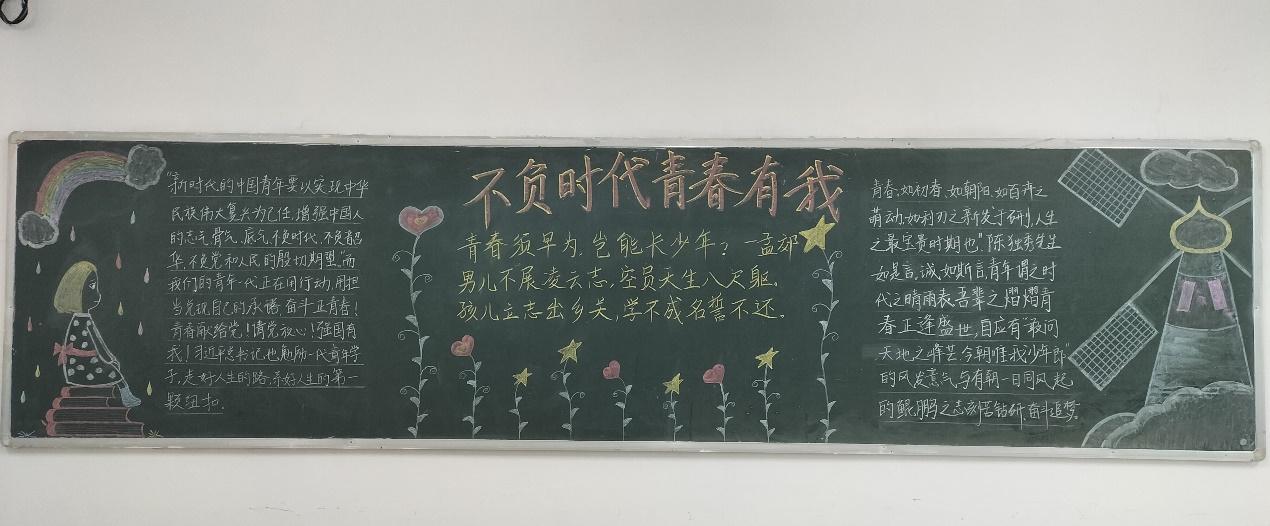 不负时代青春有我
"新时代的中国青年要以实现中华
民族伟大复兴为己任,增强中国人
的志气、骨气、底气,不负时代,不负韶
华,不负党和人民的殷切期望。"而
我们的青年一代正在用行动,用担
当兑现自己的承诺,奋斗正青春!
青春献给党!请党放心!强国有
我!习近平总书记,也勉励一代青年学
子,走好人生的路,系好人生的第一
颗纽扣。
青春须早为,岂能长少年?—孟郊
男儿不展凌云志,空负天生八尺躯。
孩儿立志出乡关,学不成名誓不还。
青春,如初春,如朝阳,如百卉之
萌动,如利刃之新发于硎,人生
之最宝贵时期也,"陈独秀先生
如是言,诚如斯言青年谓之时
代之晴雨表,吾辈之熠熠青
春正逢盛世,自应有"敢问
天地之
今朝唯我少年郎"
的风发意气与有朝一日同风起
的鲲鹏之志,刻苦钻研,奋斗追梦。